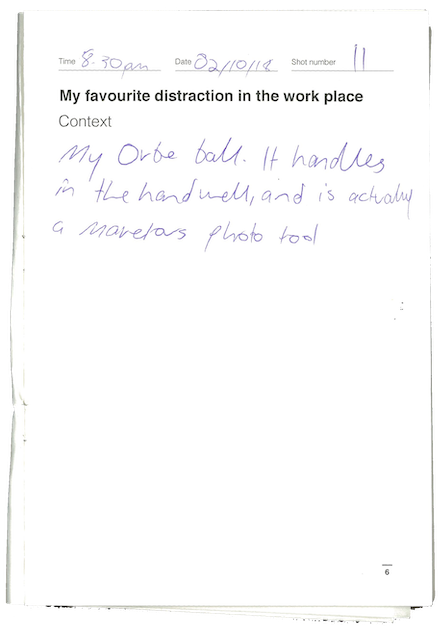 Time 8.30am Date 02/10/18 Shot number 11
My favourite distraction in the work place
Context
My Orbe ball. It handles
in the hand well, and is actually
a marelous photo tool
6